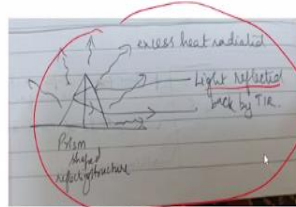 excess heat radiated
Light reflected
back by TIR.
Prism
shaped
reflecting structure